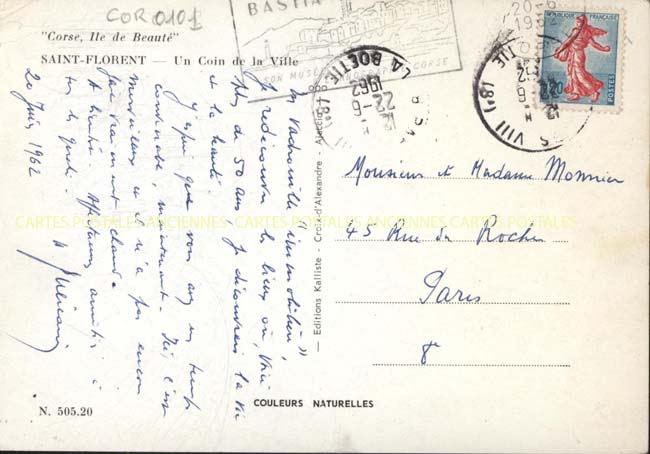 COR 0101
"Corse, Ile de Beauté"
SAINT-FLORENT — Un Coin de la Ville
BASTIA
SON MUSÉE
CORSE
LA BOETIE (8e)
22-6
1962
VIII
(8e)
REPUBLIQUE FRANÇAISE
0,20
POSTES
20 Juin 1962
En vadrouille "immobilière",
je redécouvre les lieux où, voici
plus de 50 ans je découvrais la vie
et la beauté.
J'espère que vous avez un temps
convenable, maintenant. Ici, c'est
merveilleux et il n'a pas encore
fait vraiment chaud.
A bientôt. Affectueuses amitiés à
tous les
— Editions Kalliste - Croix-d'Alexandre - Ajaccio
Monsieur et Madame Monnier
45 Rue du Rocher
Paris
8e
CARTES POSTALES ANCIENNES CARTES POSTALES ANCIENNES CARTES POSTALES
N. 505.20
COULEURS NATURELLES